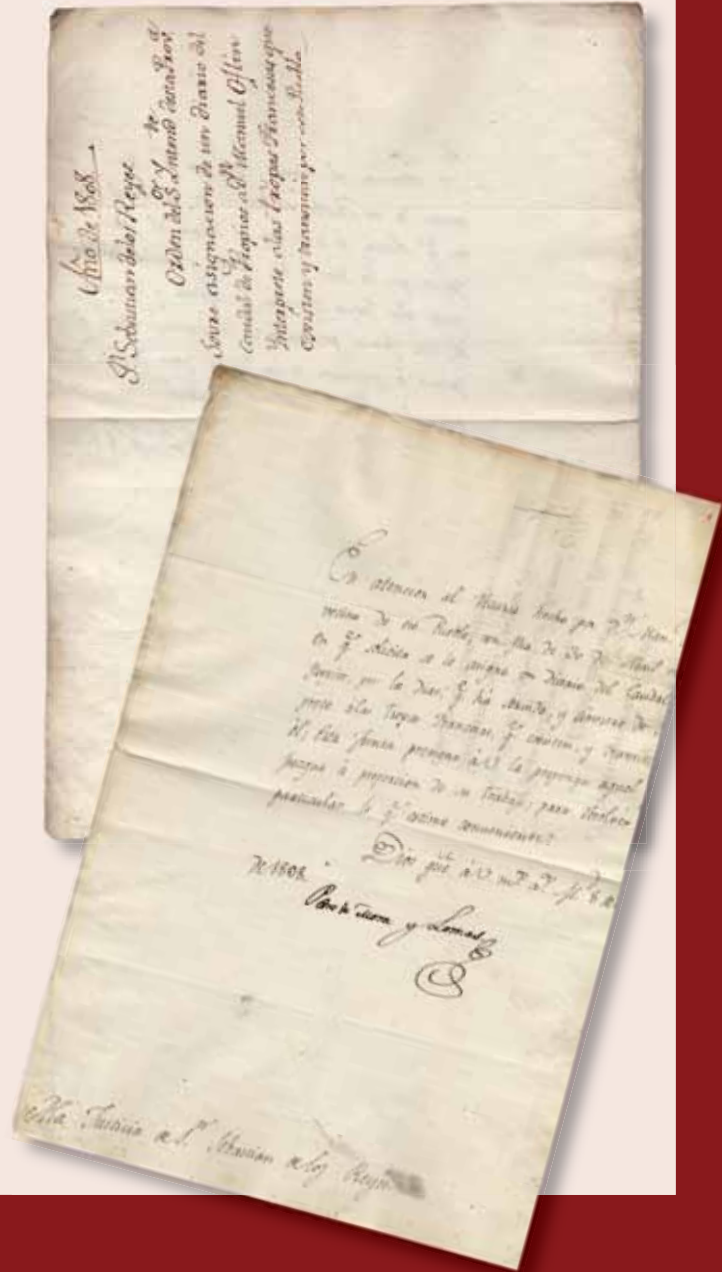 Año de 1808
Sn Sebastian de los Reyes
Orden del Sor Yntendte de esta Prova
Sovre asignacion de un diario del
Caudal de Propios a Dn Manuel
Ynterprete a las tropas Francesas que
existen y transitan por esta Puebla
En atencion al hecho por Dn Man
vecino de esa Puebla, en de 30 de Abril
en qe solicita se le asigne un diario del Caudal
por los dias qe ha
prete a las tropas Francesas, qe existen, y transit
V. la proponga aquel
juzgue a proporcion de su trabajo, para
particular lo qe estime conveniente.
Dios gue a V. ms as
de 1808.
Pedro de Mora y Lomas
Justicia de Sn Sebastian de los Reyes